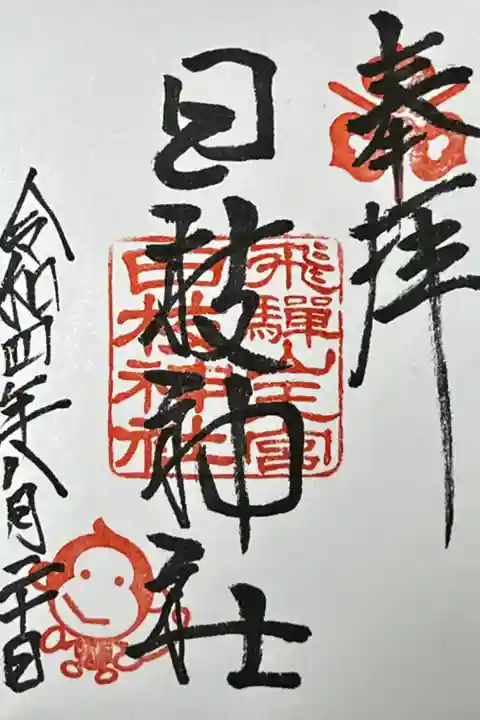 奉拝
日枝神社
飛騨山王宮
日枝神社
令和四年八月二十日